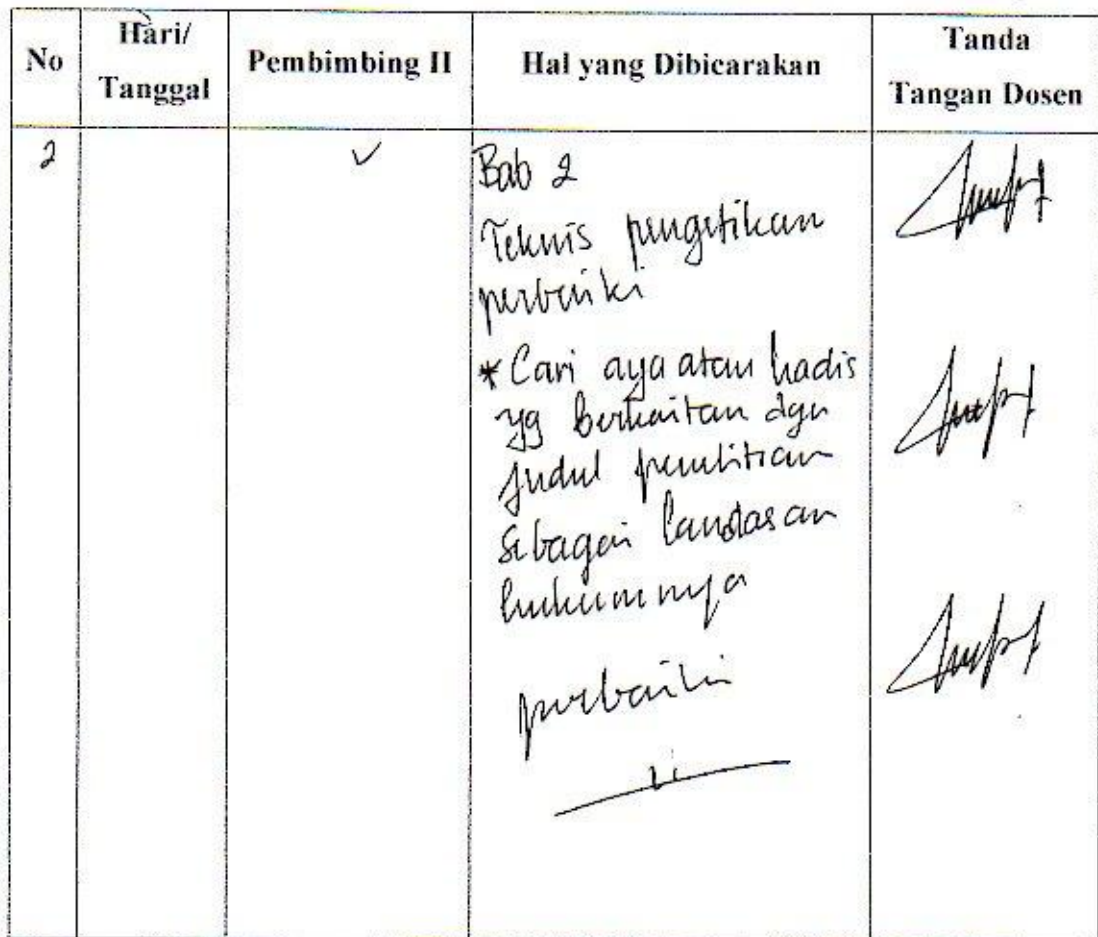 No
Hari/
Tanggal
Pembimbing II
Hal yang Dibicarakan
Tanda
Tangan Dosen
2
✓
Bab 2
Teknis pengetikan
perbaiki
* Cari aya atau hadis
yg berkaitan dgn
judul penelitian
sebagai landasan
hukumnya
perbaiki